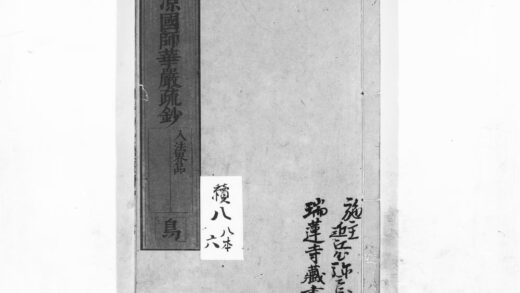 涼國師華嚴疏鈔
入法界品
鳥
續八 八本
六
施主
瑞蓮寺藏書